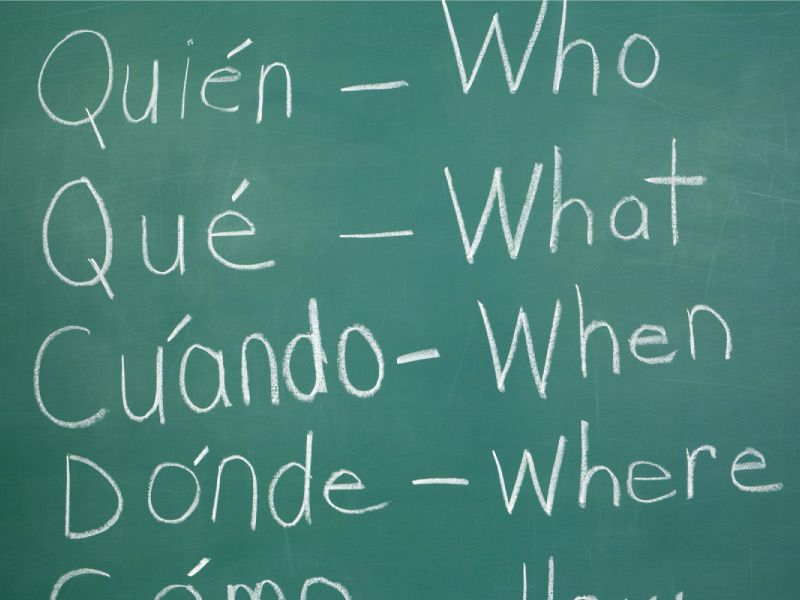 Quién — Who
Qué — What
Cuándo - When
Dónde — Where
Cómo How